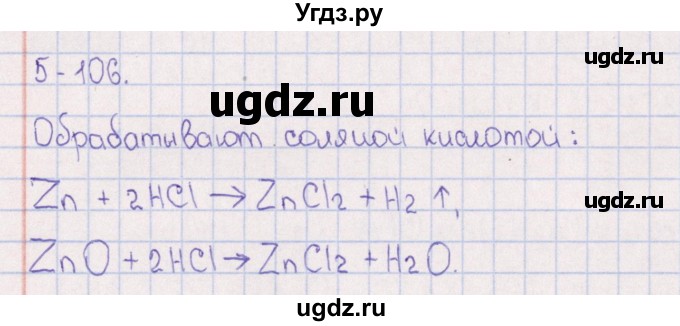 Угдз.ру
ugdz.ru
5-106.
ugdz.ru
Обрабатывают соляной кислотой:
ugdz.ru
Zn + 2HCl → ZnCl2 + H2 ↑,
ugdz.ru
ZnO + 2HCl → ZnCl2 + H2O.
ugdz.ru
ugdz.ru